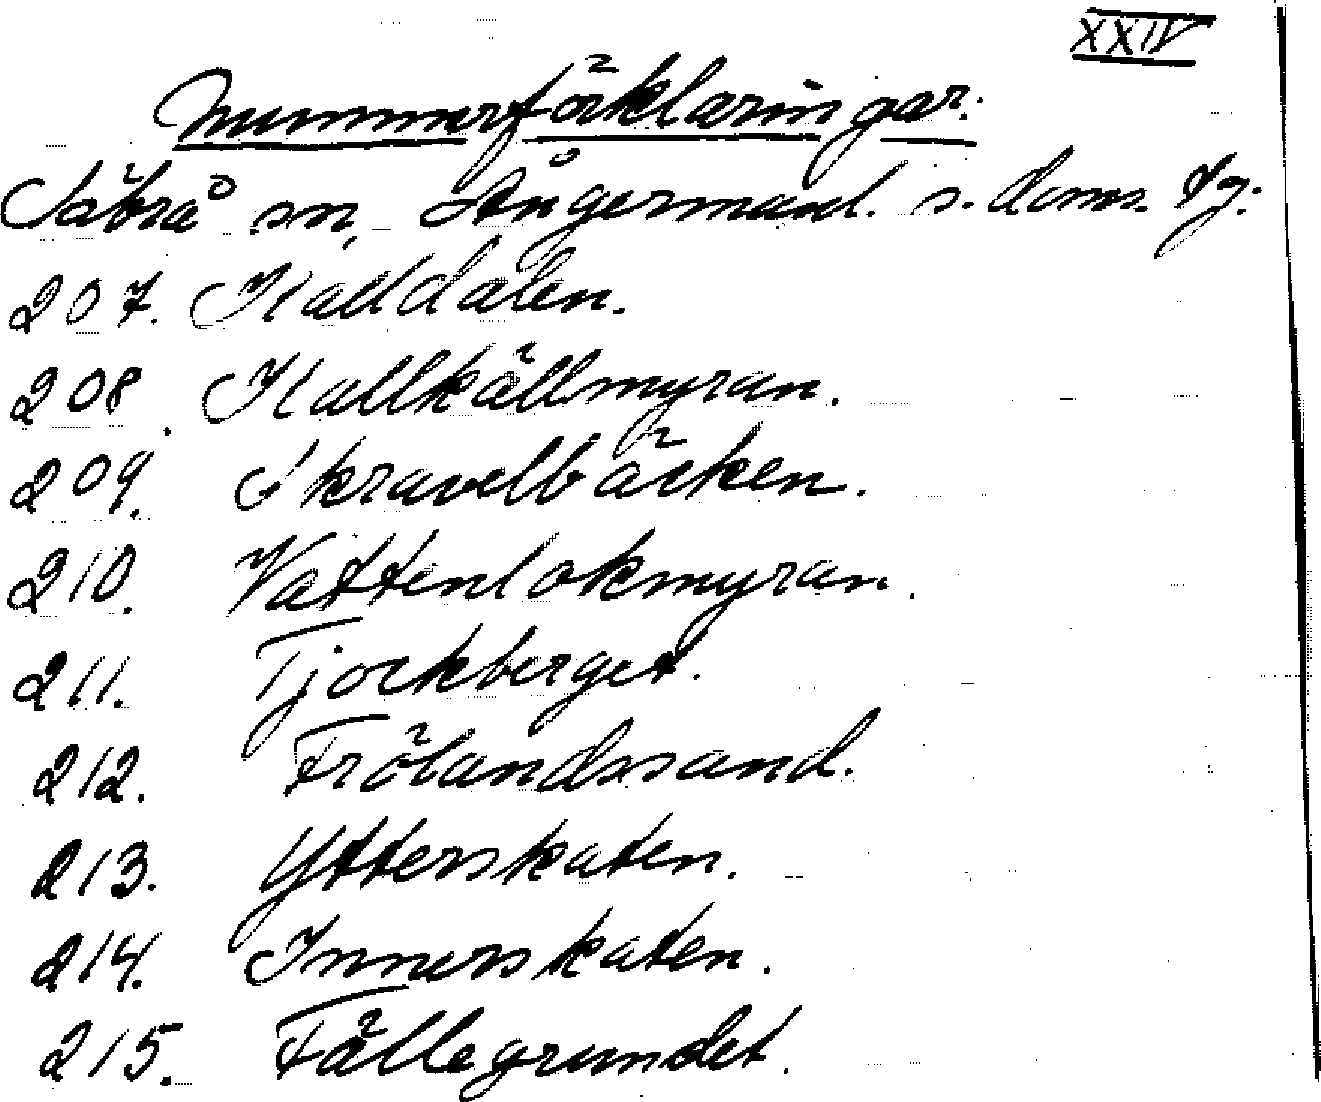 XXIV
Nummerförklaringar.
Säbrå sn, Ångermanl. s. doms. tg.
207. Kalldalen.
208. Kallkällmyran.
209. Skravelbäcken.
210. Vattenlokmyran.
211. Tjockberget.
212. Frölandssand.
213. Ytterskaten.
214. Innerskaten.
215. Fällegrundet.